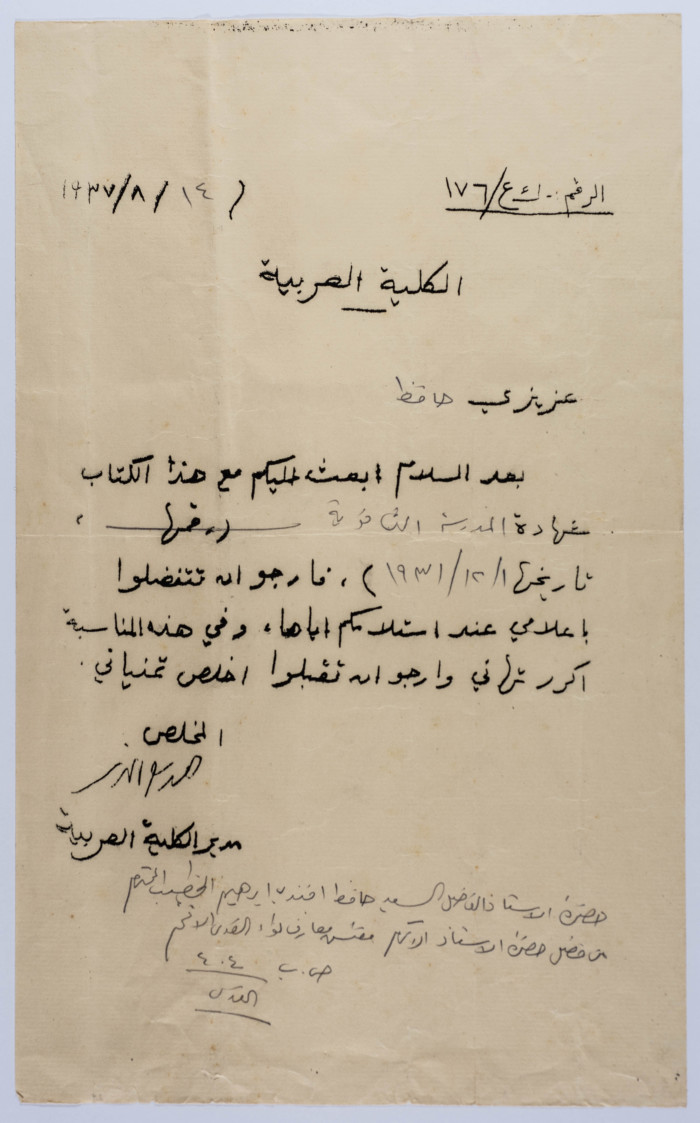 الرقم :- ك ع/١٧٦
( ١٤ /٨/١٩٣٧
الكلية العربية
عزيزي حافظ
بعد السلام ابعث اليكم مع هذا الكتاب
شهادة المدرسة الثانوية (رقمها ،
تاريخها ١/١٢/١٩٣١) ، فارجو ان تتفضلوا
باعلامي عند استلامكم اياها، وفي هذه المناسبة
اكرر تهاني وارجو ان تقبلوا اخلص تمنياتي .
المخلص
مدير الكلية العربية
حضرة الاستاذ الفاضل السيد حافظ افندي ابراهيم الخطيب المحترم
من فضل حضرة الاستاذ الاكرم مفتش معارف لواء القدس الافخم
ص. ب ٤٠٤
القدس